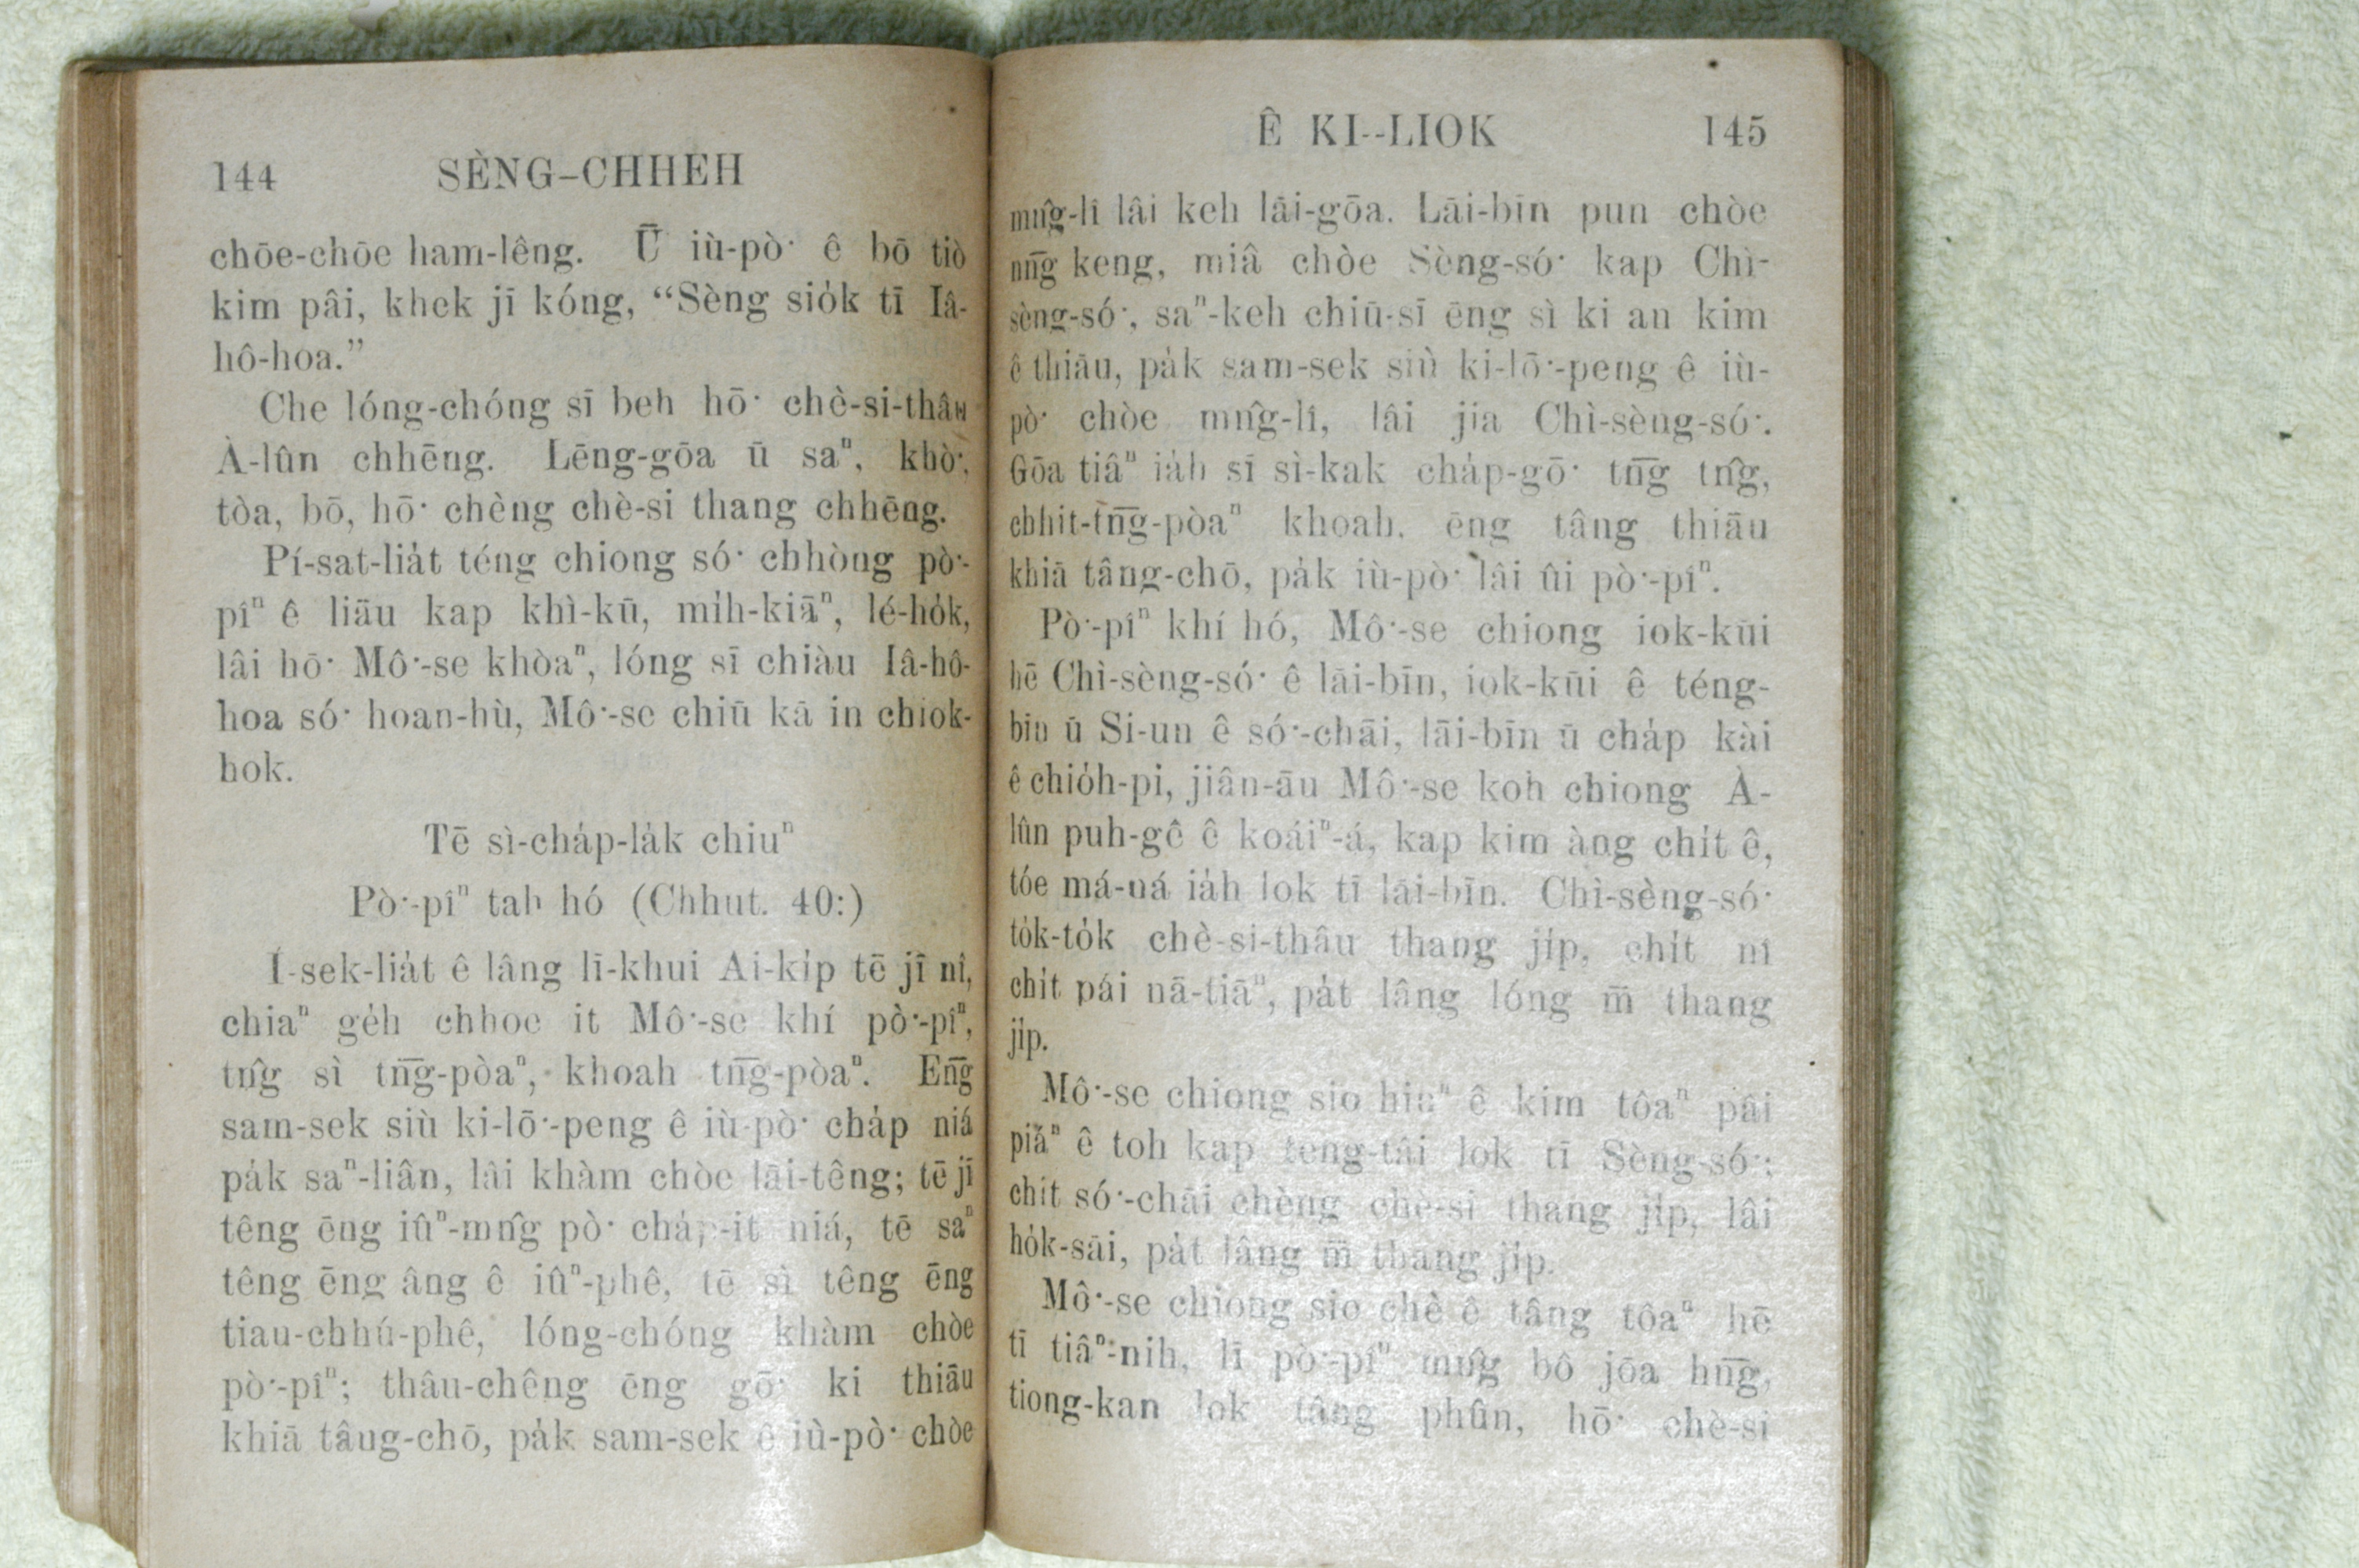 144 SÈNG-CHHEH
chōe-chōe ham-lêng. Ū iù-pò͘ ê bō tiò
kim pâi, khek jī kóng, “Sèng sio̍k tī Iâ-
hô-hoa.”
Che lóng-chóng sī beh hō͘ chè-si-thâu
À-lûn chhēng. Lēng-gōa ū saⁿ, khò͘,
tòa, bō, hō͘ chèng chè-si thang chhēng.
Pí-sat-lia̍t téng chiong só͘ chhòng pò͘-
pîⁿ ê liāu kap khì-kū, mi̍h-kiāⁿ, lé-ho̍k,
lâi hō͘ Mô͘-se khòaⁿ, lóng sī chiàu Iâ-hô-
hoa só͘ hoan-hù, Mô͘-se chiū kā in chiok-
hok.
Tē sì-cha̍p-la̍k chiuⁿ
Pò͘-pîⁿ tah hó (Chhut. 40:)
Í-sek-lia̍t ê lâng lī-khui Ai-ki̍p tē jī nî,
chiaⁿ ge̍h chhoe it Mô͘-se khí pò͘-pîⁿ,
tn̂g sì tn̄g-pòaⁿ, khoah tn̄g-pòaⁿ. En̄g
sam-sek siù ki-lō͘-peng ê iù-pò͘ cha̍p niá
pa̍k saⁿ-liân, lâi khàm chòe lāi-têng; tē jī
têng ēng iûⁿ-mn̂g pò͘ cha̍p-it niá, tē saⁿ
têng ēng âng ê iûⁿ-phê, tē sì têng ēng
tiau-chhú-phê, lóng-chóng khàm chòe
pò͘-pîⁿ; thâu-chêng ēng gō͘ ki thiāu
khiā tâug-chō, pa̍k sam-sek ê iù-pò͘ chòe
Ê KI--LIOK 145
mn̂g-lî lâi keh lāi-gōa. Lāi-bīn pun chòe
nn̄g keng, miâ chòe Sèng-só͘ kap Chì-
sèng-só͘, saⁿ-keh chiū-sī ēng sì ki an kim
ê thiāu, pa̍k sam-sek siù ki-lō͘-peng ê iù-
pò͘ chòe mn̂g-lî, lâi jia Chì-sèng-só͘.
Gōa tiâⁿ ia̍h sī sì-kak cha̍p-gō͘ tn̄g tn̂g,
chhit-tn̄g-pòaⁿ khoah. ēng tâng thiāu
khiā tâng-chō, pa̍k iù-pò͘ lâi ûi pò͘-pîⁿ.
Pò͘-pîⁿ khí hó, Mô͘-se chiong iok-kūi
hē Chì-sèng-só͘ ê lāi-bīn, iok-kūi ê téng-
bīn ū Si-un ê só͘-chāi, lāi-bīn ū cha̍p kài
ê chio̍h-pi, jiân-āu Mô͘-se koh chiong À-
lûn puh-gê ê koáiⁿ-á, kap kim àng chi̍t ê,
tóe má-ná ia̍h lok tī lāi-bīn. Chì-sèng-só͘
to̍k-to̍k chè-si-thâu thang ji̍p, chi̍t nî
chi̍t pái nā-tiāⁿ, pa̍t lâng lóng m̄ thang
ji̍p.
Mô͘-se chiong sio hiuⁿ ê kim tôaⁿ pâi
piáⁿ ê toh kap teng-tâi lok tī Sèng-só͘;
chi̍t só͘-chāi chèng chè-si thang ji̍p, lâi
ho̍k-sāi, pa̍t lâng m̄ thang ji̍p.
Mô͘-se chiong sio chè ê tâng tôaⁿ hē
tī tiâⁿ-nih, lī pò͘-pîⁿ mn̂g bô jōa hn̄g,
tiong-kan lok tâng phûn, hō͘ chè-si